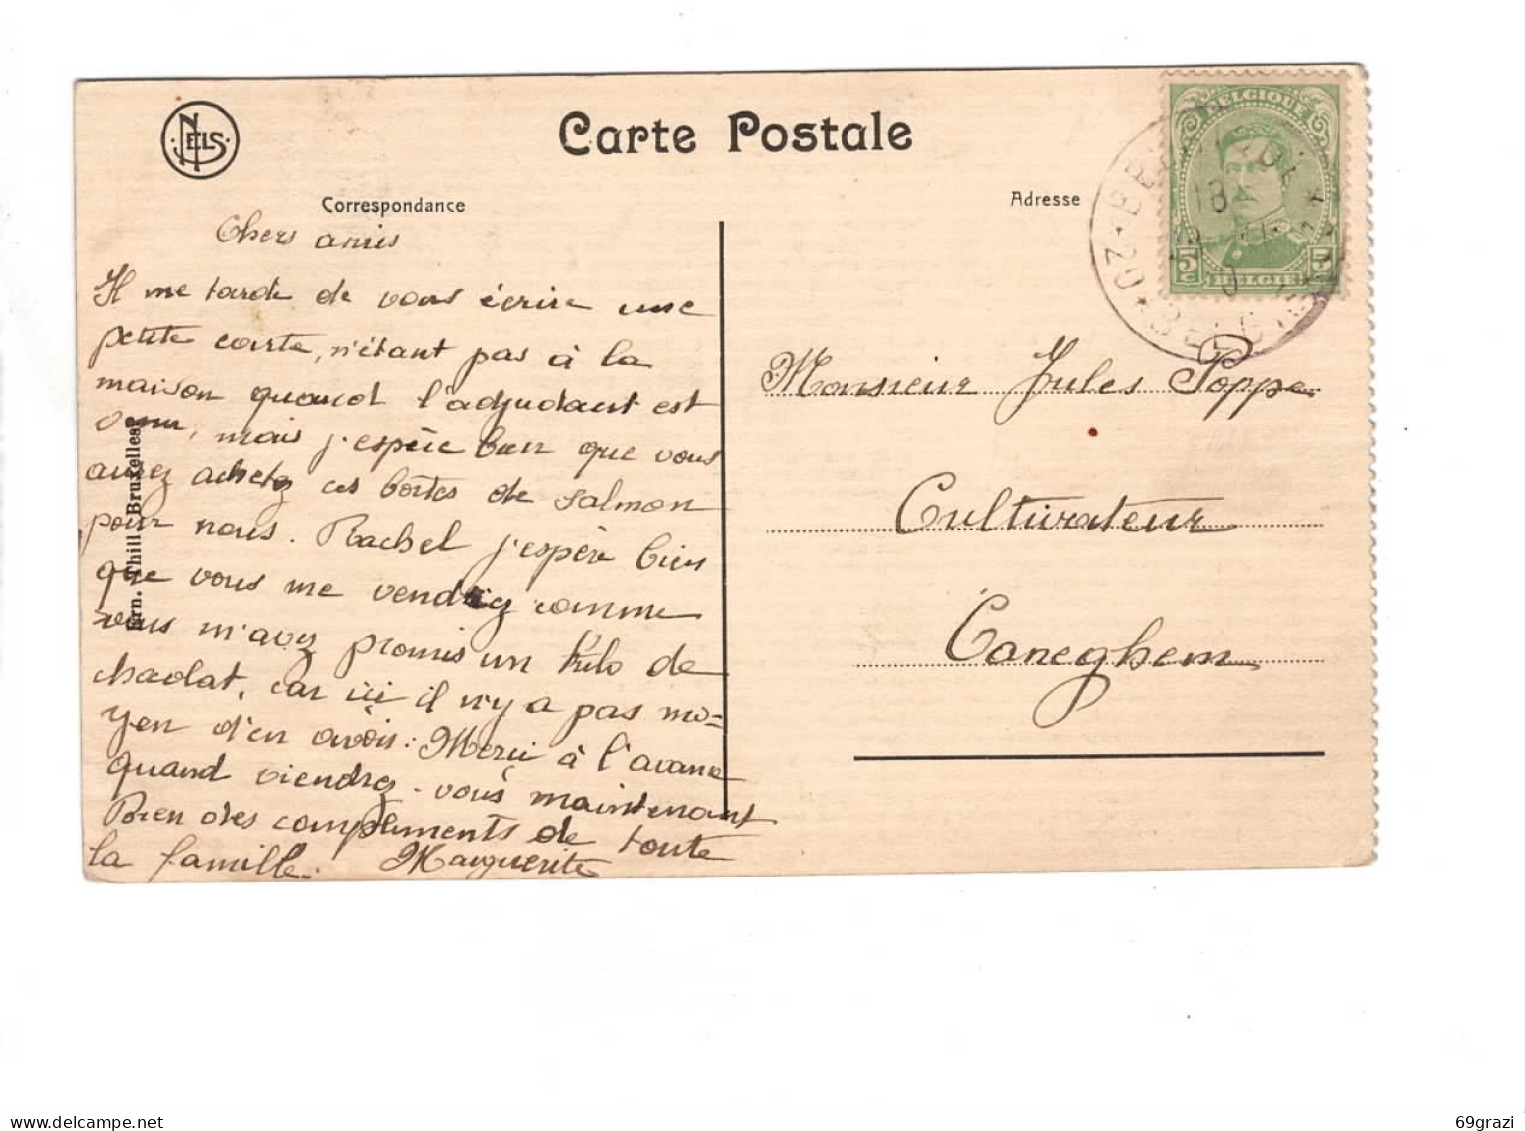 NELS
Carte Postale
Correspondance
Adresse
BELGIQUE
5c 5c
BELGIE
Chers amis
Il me tarde de vous écrire une
petite carte, n'étant pas à la
maison quand l'adjudant est
venu, mais j'espère bien que vous
aurez achetez ces boîtes de salmon
pour nous. Rachel j'espère bien
que vous me vendrez comme
vous m'avez promis un kilo de
chaolat, car ici il n'y a pas mo=
yen d'en avoir. Merci à l'avance
quand viendrez-vous maintenant
Bien des compliments de toute
la famille. Marguerite
Ern. Thill, Bruxelles
Monsieur Jules Poppe
Cultivateur
Caneghem
69grazi